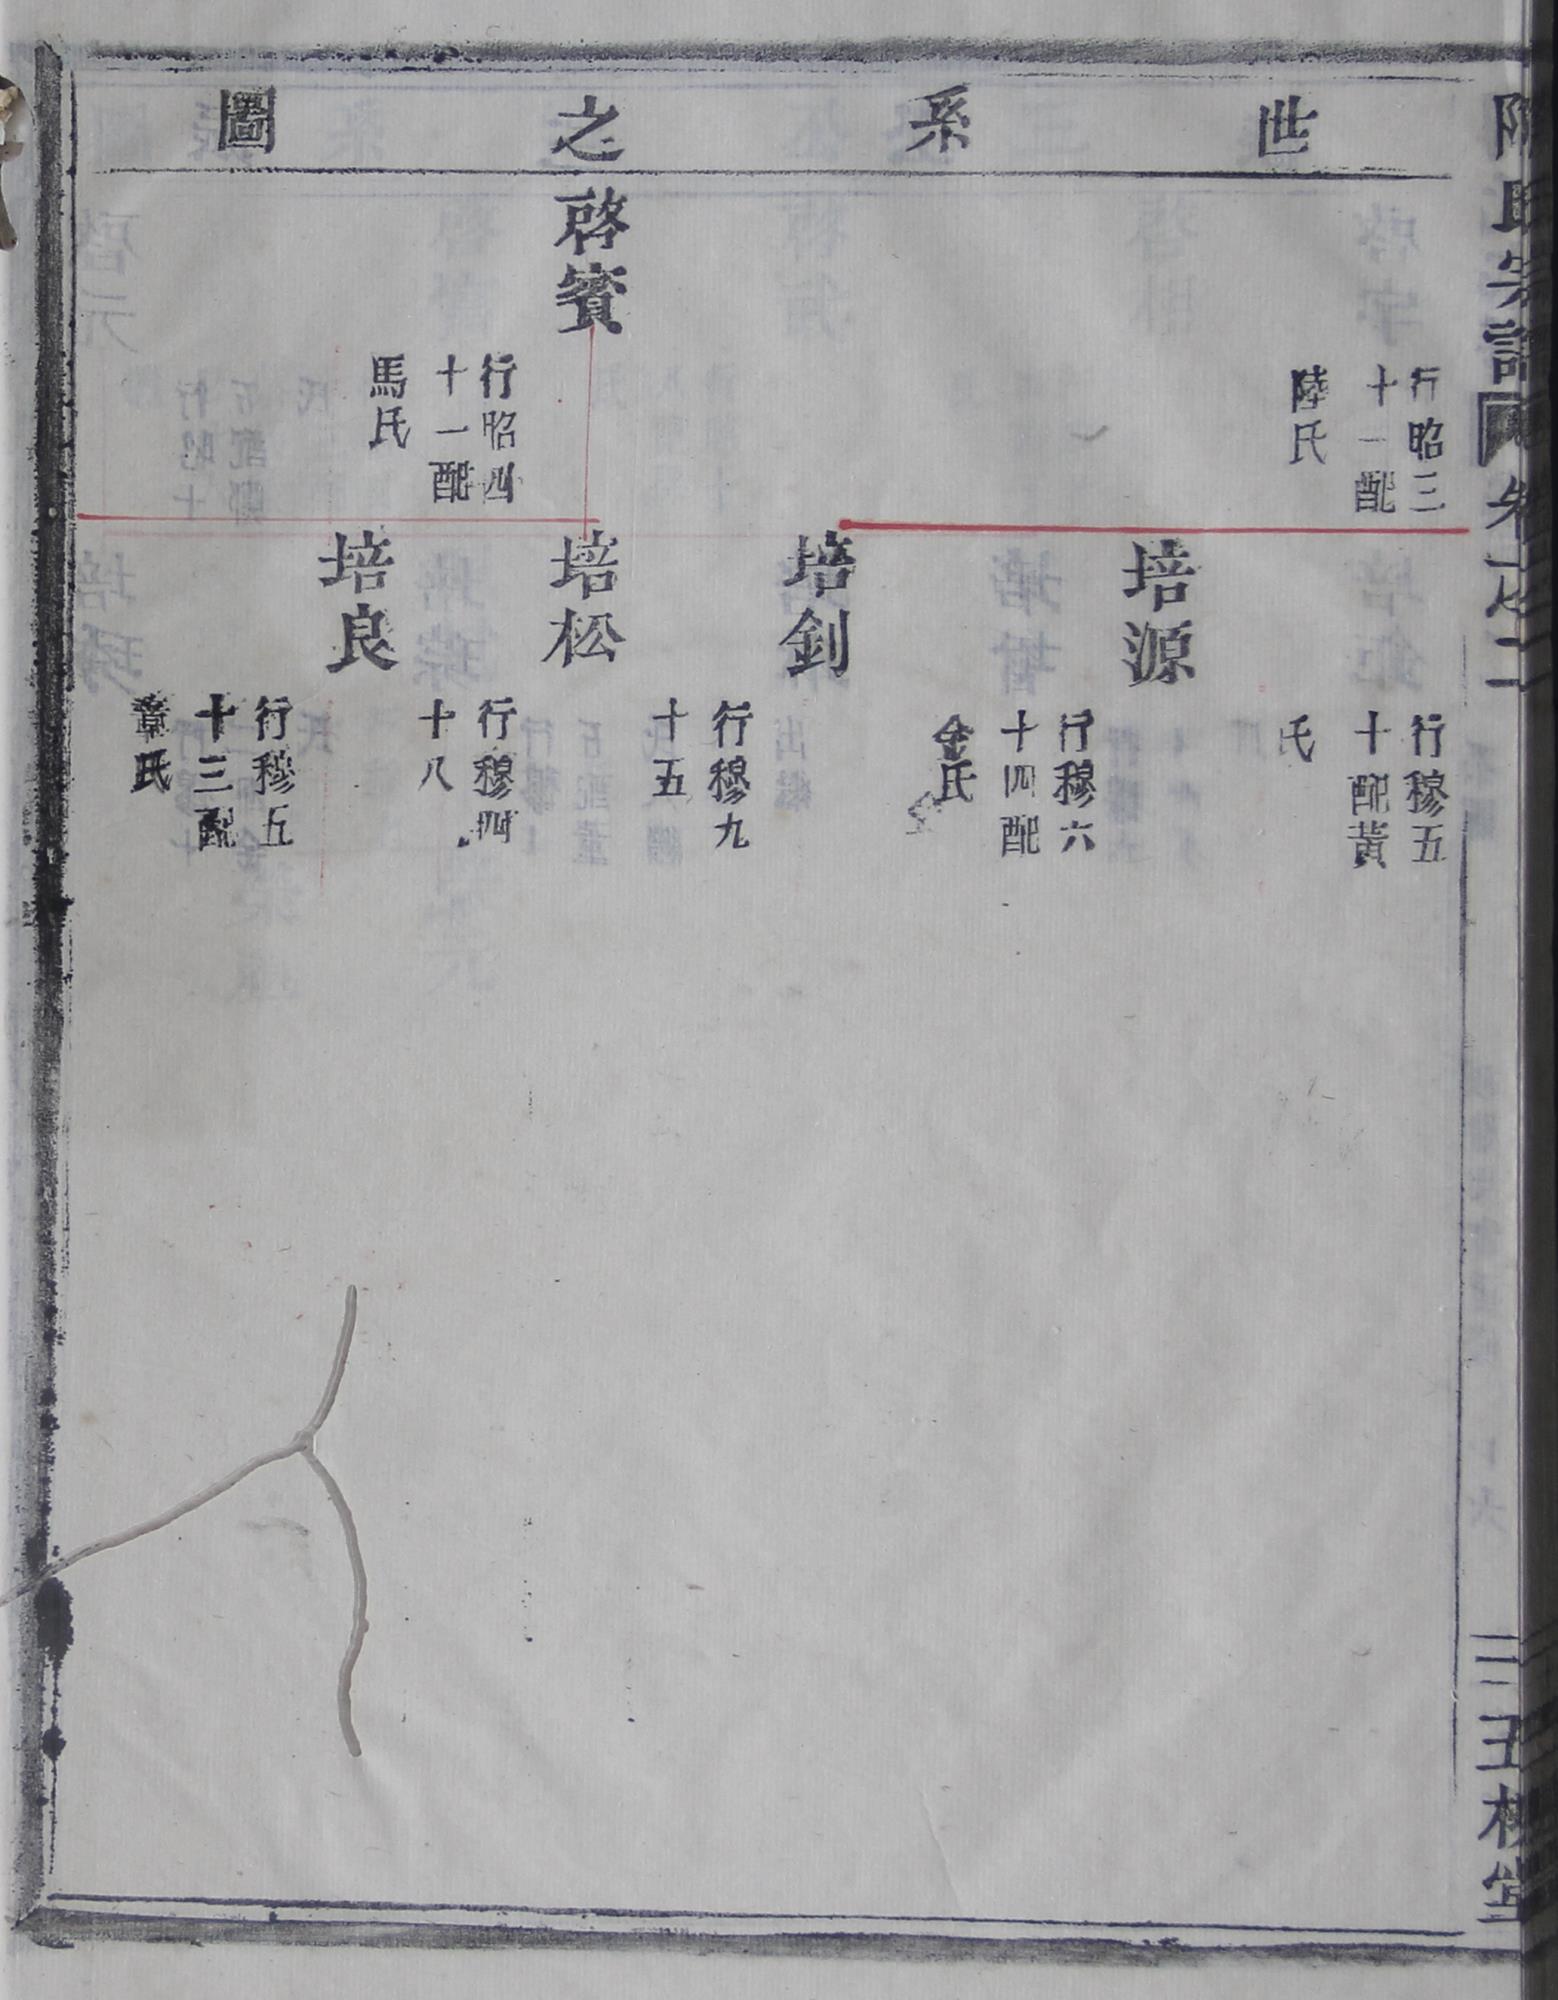 世系之圖
行昭三
十一配
陸氏
啓賓
行昭四
十一配
馬氏
行穆五
十配黃
氏
培源
行穆六
十四配
金氏
培釗
行穆九
十五
培松
行穆四
十八
培良
行穆五
十三配
章氏
氏宗譜
卷之二
三五
堂